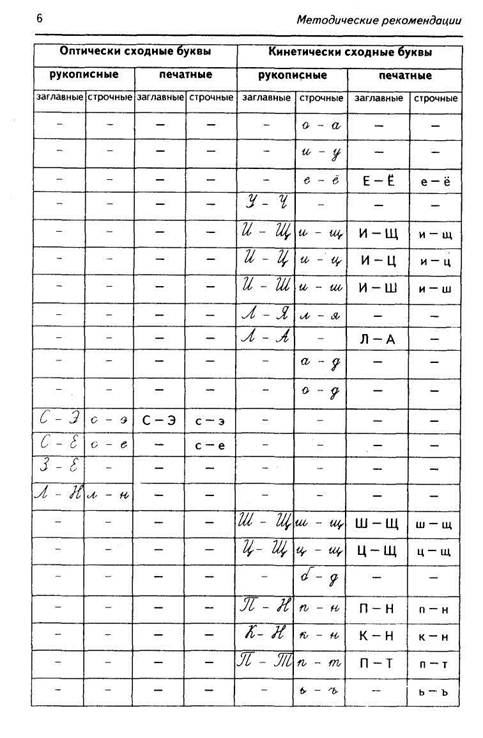 6 Методические рекомендации
Оптически сходные буквы Кинетически сходные буквы
рукописные печатные рукописные печатные
заглавные строчные заглавные строчные заглавные строчные заглавные строчные
– – – – – о – а – –
– – – – – и – у – –
– – – – – е – ё Е – Ё е – ё
– – – – У – Ч – – –
– – – – И – Щ и – щ И – Щ и – щ
– – – – И – Ц и – ц И – Ц и – ц
– – – – И – Ш и – ш И – Ш и – ш
– – – – Л – Я л – я – –
– – – – Л – А – Л – А –
– – – – – а – д – –
– – – – – о – д – –
С – Э с – э С – Э с – э – – – –
С – Е с – е – с – е – – – –
З – Е – – – – – – –
Л – Н л – н – – – – – –
– – – – Ш – Щ ш – щ Ш – Щ ш – щ
– – – – Ц – Щ ц – щ Ц – Щ ц – щ
– – – – – б – д – –
– – – – П – Н п – н П – Н п – н
– – – – К – Н к – н К – Н к – н
– – – – П – Т п – т П – Т п – т
– – – – – ь – ъ – ь – ъ